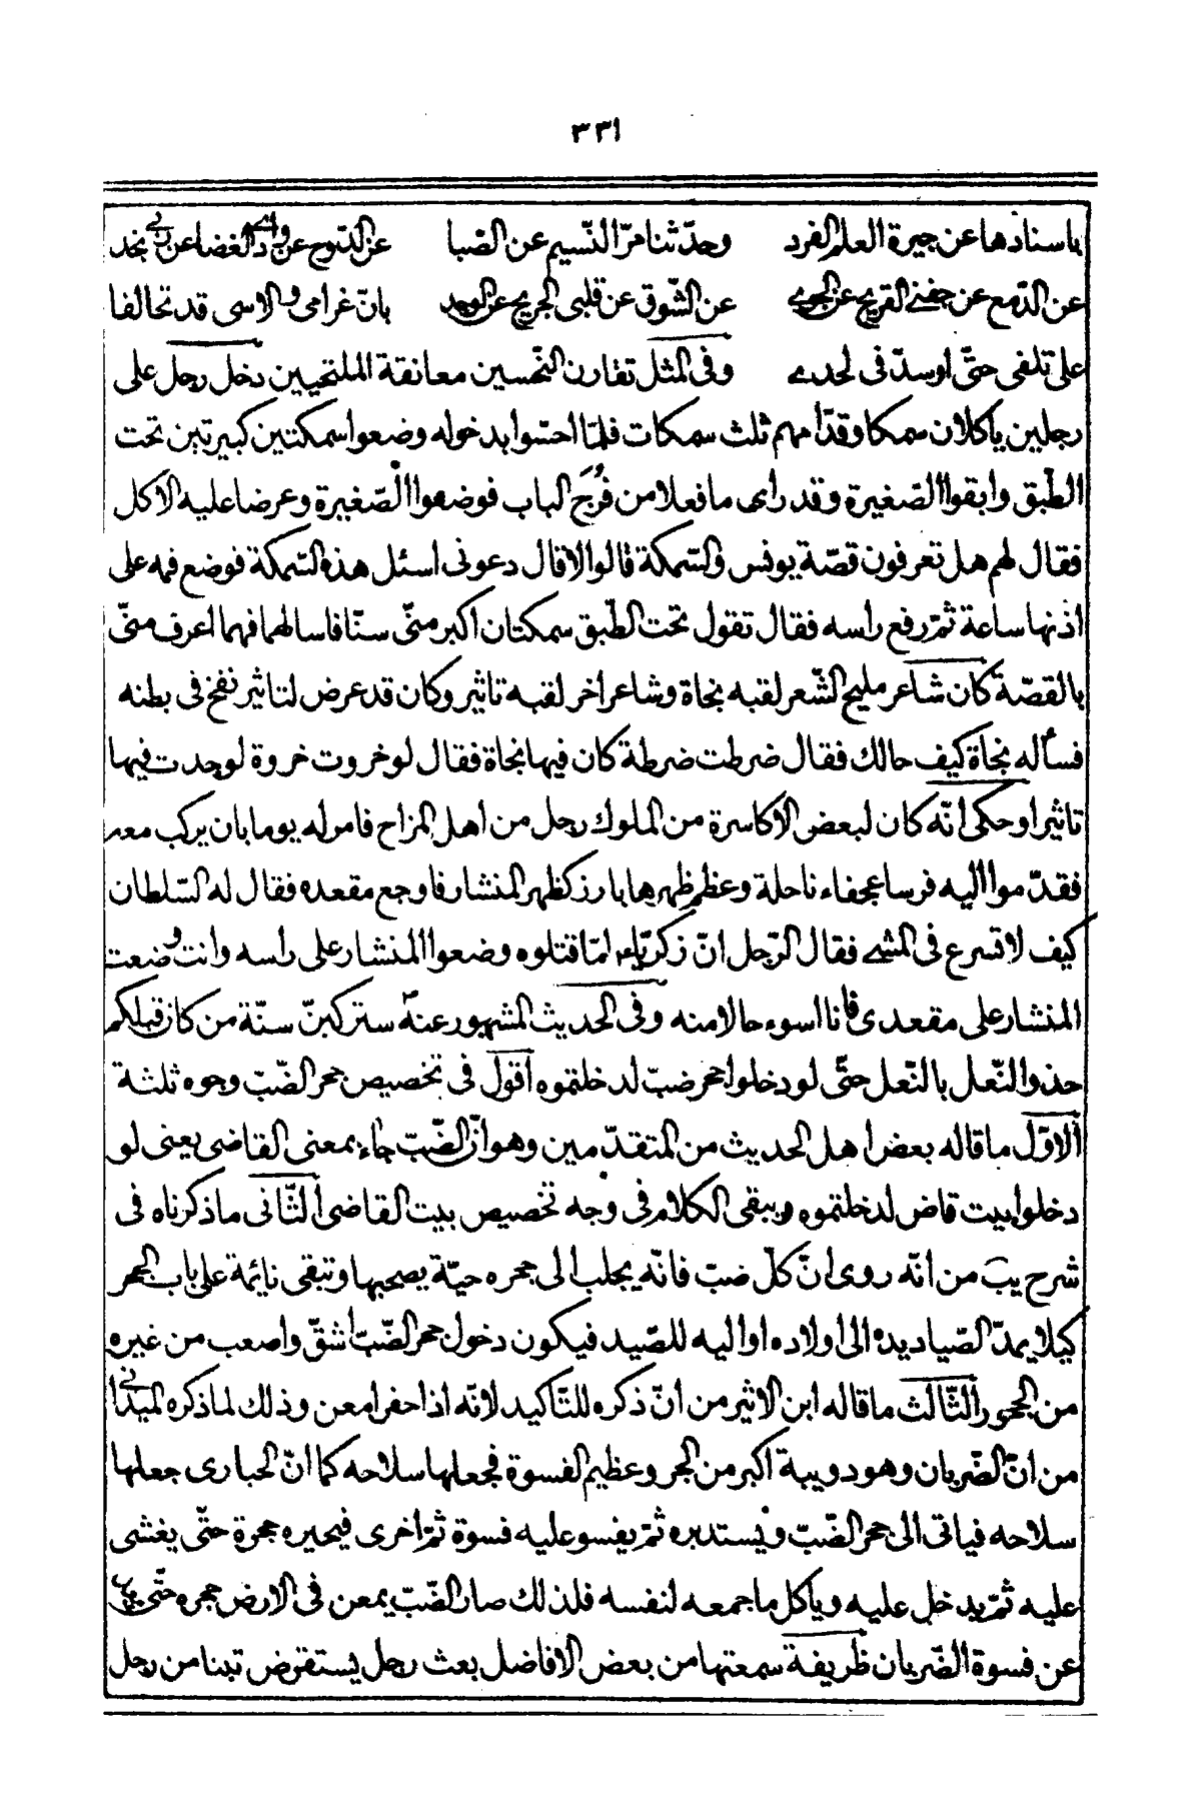 ٣٣١
باسنادها عن جيرة العلم الفرد وحدّثنا مرّ النّسيم عن الصّبا عن الدّوح عن وادي الغضا عن ربى نجد
عن الدّمع عن جفني القريح عن الجوى عن الشّوق عن قلبي الجريح عن الوجد بانّ غرامى والاسى قد تحالفا
على تلفى حتّى اوسدّ فى لحدى وفى المثل تقارن النّحسين معانقة الملتحيين دخل رجل على
رجلين ياكلان سمكا وقدّامهم ثلث سمكات فلمّا احسّوا بدخوله وضعوا سمكتين كبيرتين تحت
الطّبق وابقوا الصّغيرة وقد راى ما فعلا من فُرَج الباب فوضعوا الصّغيرة وعرضا عليه الاكل
فقال لهم هل تعرفون قصّة يونس والسّمكة قالوا لا قال دعونى اسئل هذه السّمكة فوضع فمه على
اذنها ساعة ثمّ رفع راسه فقال تقول تحت الطّبق سمكتان اكبر منّى سنّا فاسالهما فهما اعرف منّى
بالقصّة كان شاعر مليح الشّعر لقبه نجاة وشاعر اخر لقبه تاثير وكان قد عرض لتاثير نفخ فى بطنه
فسأله نجاة كيف حالك فقال ضرطت ضرطة كان فيها نجاة فقال لو خروت خروة لوجدت فيها
تاثيرا وحكى انّه كان لبعض الاكاسرة من الملوك رجل من اهل المزاح فامر له يوما بان يركب معه
فقدّموا اليه فرسا عجفاء ناحلة وعظم ظهرها بارز كظهر المنشار فاوجع مقعده فقال له السّلطان
كيف لا تسرع فى المشى فقال الرّجل انّ زكريّاء لمّا قتلوه وضعوا المنشار على راسه وانت وضعت
المنشار على مقعدى فانا اسوء حالا منه وفى الحديث المشهور عنه ص ستركبنّ سنّة من كان قبلكم
حذو النّعل بالنّعل حتّى لو دخلوا جحر ضبّ لدخلتموه اقول فى تخصيص جحر الضّبّ وجوه ثلثة
الاوّل ما قاله بعض اهل الحديث من المتقدّمين وهو انّ الضّبّ جاء بمعنى القاضى يعنى لو
دخلوا بيت قاض لدخلتموه ويبقى الكلام فى وجه تخصيص بيت القاضى الثّانى ما ذكرناه فى
شرح يب من انّه روى انّ كلّ ضبّ فانّه يجلب الى جحره حيّة يصحبها وتبقى نائمة على باب الجحر
كيلا يمدّ الصّياد يده الى اولاده او اليه للصّيد فيكون دخول جحر الضّبّ اشقّ واصعب من غيره
من الجحور الثّالث ما قاله ابن الاثير من انّ ذكره للتّاكيد لانّه اذا حفر امعن وذلك لما ذكره الميدانى
من انّ الضّربان وهو دويبة اكبر من الجر وعظيم الفسوة فجعلها سلاحه كما انّ الحبارى جعلها
سلاحه فياتى الى جحر الضّبّ ويستدبره ثمّ يفسو عليه فسوة ثمّ اخرى فيحيره جحرة حتّى يغشى
عليه ثمّ يدخل عليه وياكل ما جمعه لنفسه فلذلك صار الضّبّ يمعن فى الارض جحره حتّى
عن فسوة الضّربان ظريفة سمعتها من بعض الافاضل بعث رجل يستقرض تبنا من رجل